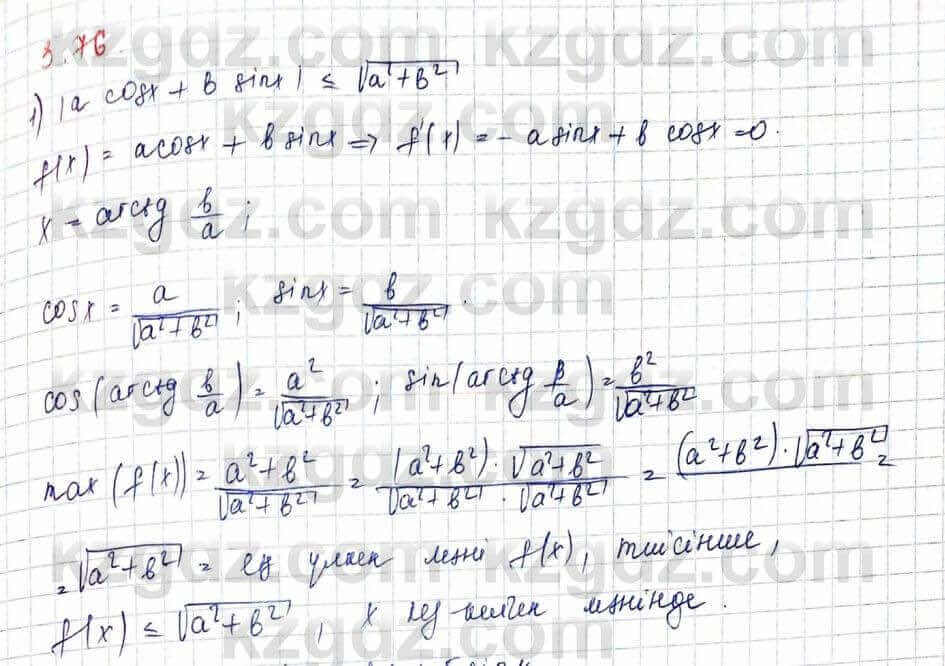 3.76.
1) |a cosx + b sinx| ≤ √(a²+b²)
f(x) = a cosx + b sinx ⇒ f'(x) = - a sinx + b cosx = 0.
x = arctg b/a ;
cosx = a/√(a²+b²) ; sinx = b/√(a²+b²) .
cos(arctg b/a) = a²/√(a²+b²) ; sin(arctg b/a) = b²/√(a²+b²)
max (f(x)) = (a²+b²)/√(a²+b²) = (a²+b²)·√(a²+b²)/(√(a²+b²)·√(a²+b²)) = (a²+b²)·√(a²+b²) =
= √(a²+b²) = ең үлкен мәні f(x), тиісінше,
f(x) ≤ √(a²+b²) , x кез-келген мәнінде.
kzgdz.com